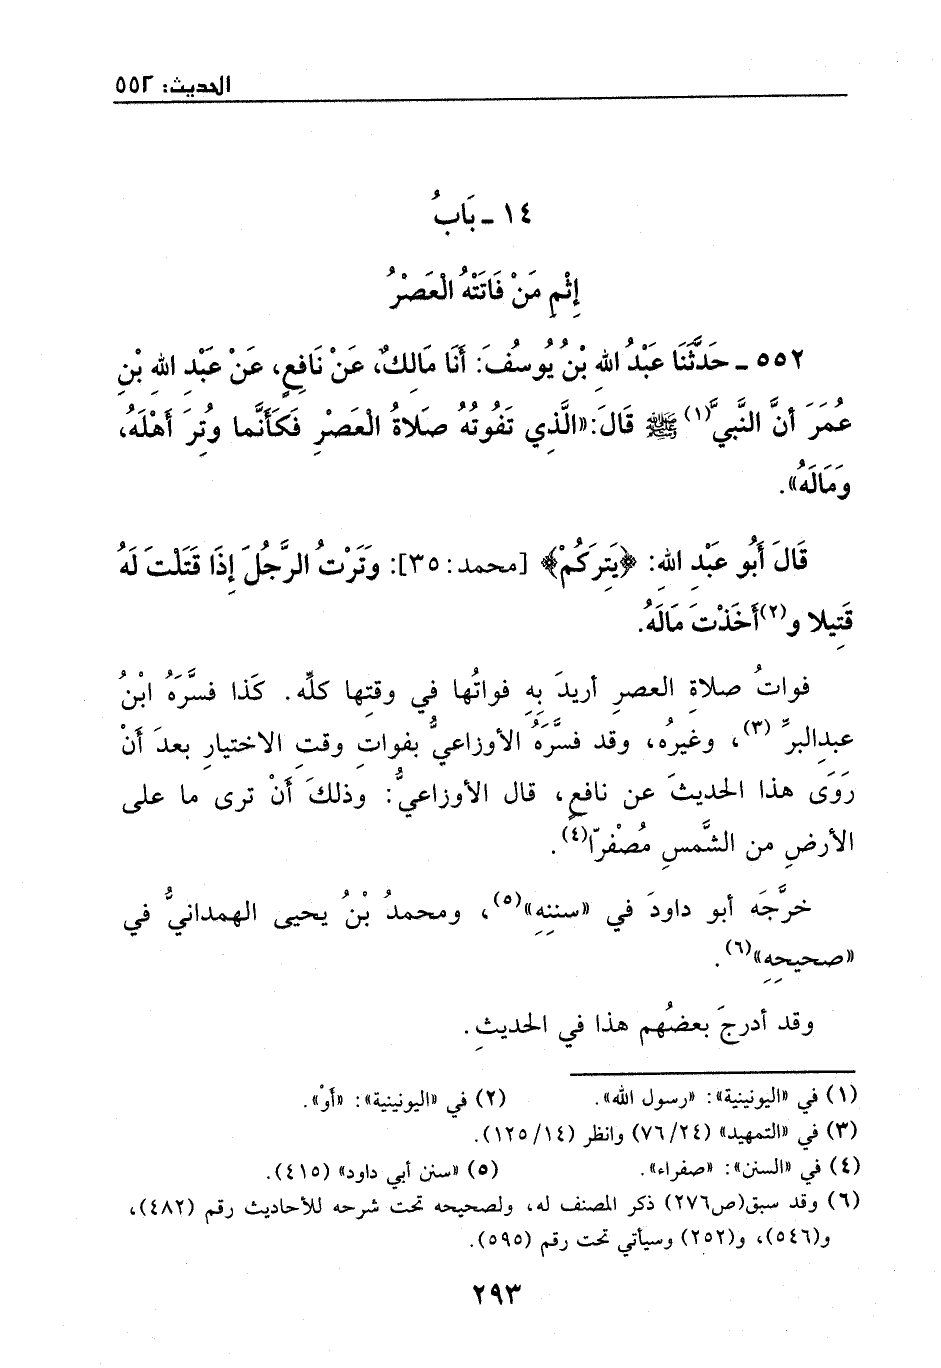 الحديث: ٥٥٢
١٤ - بَابُ
إِثْمِ مَنْ فَاتَتْهُ الْعَصْرُ
٥٥٢ - حَدَّثَنَا عَبْدُ اللهِ بْنُ يُوسُفَ: أَنَا مَالِكٌ، عَنْ نَافِعٍ، عَنْ عَبْدِ اللهِ بْنِ
عُمَرَ أنَّ النَّبِيَّ(١) ﷺ قَالَ:«الَّذِي تَفُوتُهُ صَلاةُ الْعَصْرِ فَكَأَنَّما وُتِرَ أَهْلَهُ،
وَمَالَهُ».
قَالَ أَبُو عَبْدِ اللهِ: ﴿يَتِرَكُمْ﴾ [محمد: ٣٥]: وَتَرْتُ الرَّجُلَ إِذَا قَتَلْتَ لَهُ
قَتِيلا و(٢)أَخَذْتَ مَالَهُ.
فواتُ صلاةِ العصرِ أريدَ بِهِ فواتُها في وقتِها كلِّه. كَذا فسَّرَهُ ابْنُ
عبدِالبرِّ (٣)، وغيرُه، وقد فسَّرَهُ الأوزاعيُّ بفواتِ وقتِ الاختيارِ بعدَ أَنْ
رَوَى هذا الحديثَ عن نافعٍ، قال الأوزاعيُّ: وذلكَ أَنْ ترى ما على
الأرضِ من الشَّمسِ مُصْفرّا(٤).
خرَّجَه أبو داودَ في «سننِهِ»(٥)، ومحمدُ بْنُ يحيى الهمدانيُّ في
«صحيحِهِ»(٦).
وقد أدرجَ بعضُهم هذا في الحديثِ.
(١) في «اليونينية»: «رسول الله». (٢) في «اليونينية»: «أوْ».
(٣) في «التمهيد» (٢٤/ ٧٦) وانظر (١٤/ ١٢٥).
(٤) في «السنن»: «صفراء». (٥) «سنن أبي داود» (٤١٥).
(٦) وقد سبق(ص٢٧٦) ذكر المصنف له، ولصحيحه تحت شرحه للأحاديث رقم (٤٨٢)،
و(٥٤٦)، و(٢٥٢) وسيأتي تحت رقم (٥٩٥).
٢٩٣